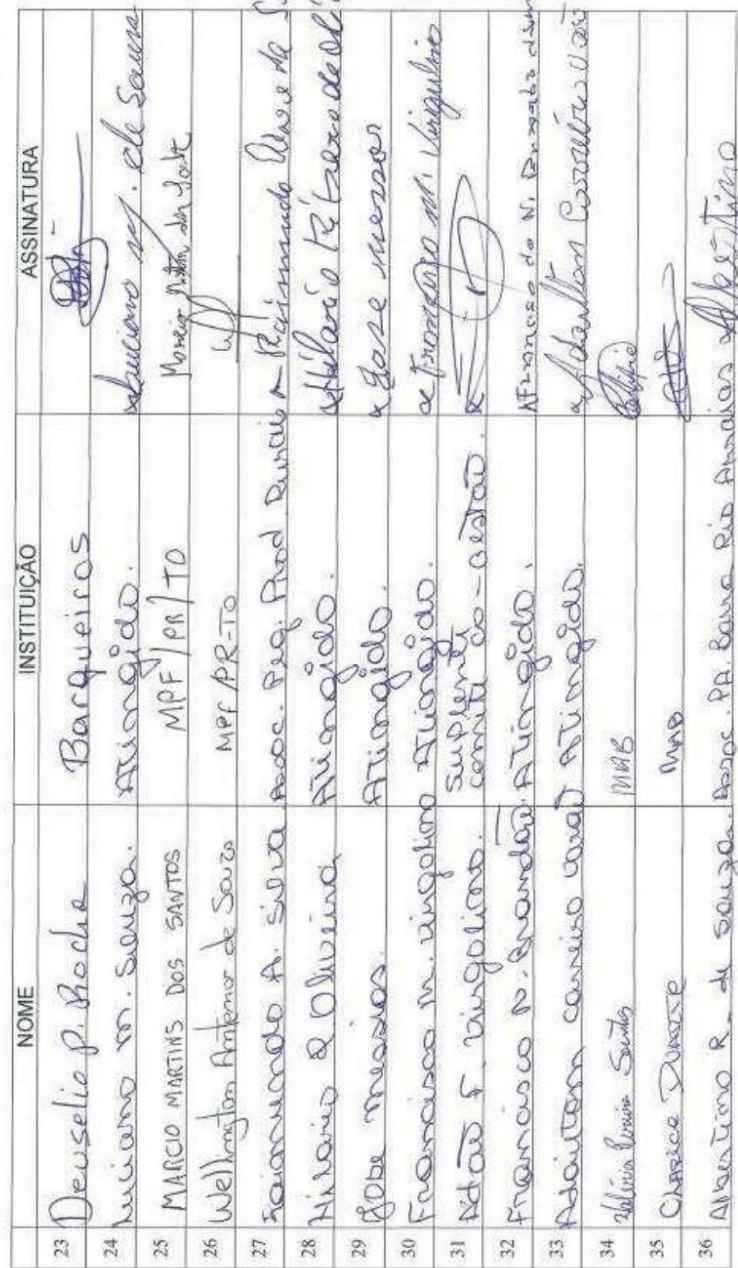 NOME INSTITUIÇÃO ASSINATURA
23 Deuselio P. Rocha Barqueiros
24 Luciano m. Souza. Atingido. Luciano m. de Sousa
25 MARCIO MARTINS DOS SANTOS MPF/PR/TO
26 Wellington Antenor de Souza MPF/PR-TO
27 Raimundo A. Silva Assoc. Peq. Prod Rurais Raimundo
28 Hilario R Oliveira Atingido. Hilario Ribeiro de
29 Jose messias. Atingido. Jose
30 Francisco m. Virgolino Atingido. Francisco m. Virgulino
31 Adão F. Virgolino. Suplente
comitê co-gestão.
32 Francisco N. Brandão Atingido. Francisco do N.
33 Adailton carneiro varão Atingido. Adailton Carneiro Varão
34 Pereira Santos MAB
35 CLARICE DUARTE MAB
36 Albertino R. de Souza. Assoc. PA. Barra Rio Albertino